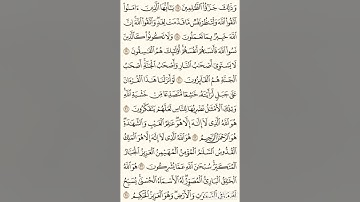 وَذَٰلِكَ جَزَٰٓؤُا۟ ٱلظَّـٰلِمِينَ ١٧ يَـٰٓأَيُّهَا ٱلَّذِينَ ءَامَنُوا۟
ٱتَّقُوا۟ ٱللَّهَ وَلْتَنظُرْ نَفْسٌ مَّا قَدَّمَتْ لِغَدٍ وَٱتَّقُوا۟ ٱللَّهَ إِنَّ
ٱللَّهَ خَبِيرٌۢ بِمَا تَعْمَلُونَ ١٨ وَلَا تَكُونُوا۟ كَٱلَّذِينَ
نَسُوا۟ ٱللَّهَ فَأَنسَىٰهُمْ أَنفُسَهُمْ أُو۟لَـٰٓئِكَ هُمُ ٱلْفَـٰسِقُونَ ١٩
لَا يَسْتَوِىٓ أَصْحَـٰبُ ٱلنَّارِ وَأَصْحَـٰبُ ٱلْجَنَّةِ أَصْحَـٰبُ
ٱلْجَنَّةِ هُمُ ٱلْفَآئِزُونَ ٢٠ لَوْ أَنزَلْنَا هَـٰذَا ٱلْقُرْءَانَ
عَلَىٰ جَبَلٍ لَّرَأَيْتَهُۥ خَـٰشِعًا مُّتَصَدِّعًا مِّنْ خَشْيَةِ ٱللَّهِ
وَتِلْكَ ٱلْأَمْثَـٰلُ نَضْرِبُهَا لِلنَّاسِ لَعَلَّهُمْ يَتَفَكَّرُونَ ٢١
هُوَ ٱللَّهُ ٱلَّذِى لَآ إِلَـٰهَ إِلَّا هُوَ عَـٰلِمُ ٱلْغَيْبِ وَٱلشَّهَـٰدَةِ
هُوَ ٱلرَّحْمَـٰنُ ٱلرَّحِيمُ ٢٢ هُوَ ٱللَّهُ ٱلَّذِى لَآ إِلَـٰهَ إِلَّا هُوَ ٱلْمَلِكُ
ٱلْقُدُّوسُ ٱلسَّلَـٰمُ ٱلْمُؤْمِنُ ٱلْمُهَيْمِنُ ٱلْعَزِيزُ ٱلْجَبَّارُ
ٱلْمُتَكَبِّرُ سُبْحَـٰنَ ٱللَّهِ عَمَّا يُشْرِكُونَ ٢٣ هُوَ ٱللَّهُ
ٱلْخَـٰلِقُ ٱلْبَارِئُ ٱلْمُصَوِّرُ لَهُ ٱلْأَسْمَآءُ ٱلْحُسْنَىٰ يُسَبِّحُ
لَهُۥ مَا فِى ٱلسَّمَـٰوَٰتِ وَٱلْأَرْضِ وَهُوَ ٱلْعَزِيزُ ٱلْحَكِيمُ ٢٤